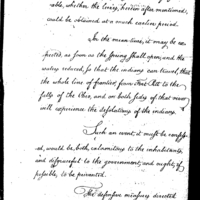 able, whether the living, herein after mentioned,
could be obtained at a much earlier period.
In the mean time, it may be ex-
pected, as soon as the spring shall open, and the
waters reduced, so that the indians can travel, that
the whole line of frontier, from Fort Pitt to the
falls of the Ohio, and on both sides of that river
will experience the depredations of the indians.
Such an event it must be confess-
ed, would be, both, calamitous to the inhabitants,
and disgraceful to the government, and ought, if
possible, to be prevented.
The defensive measures directed